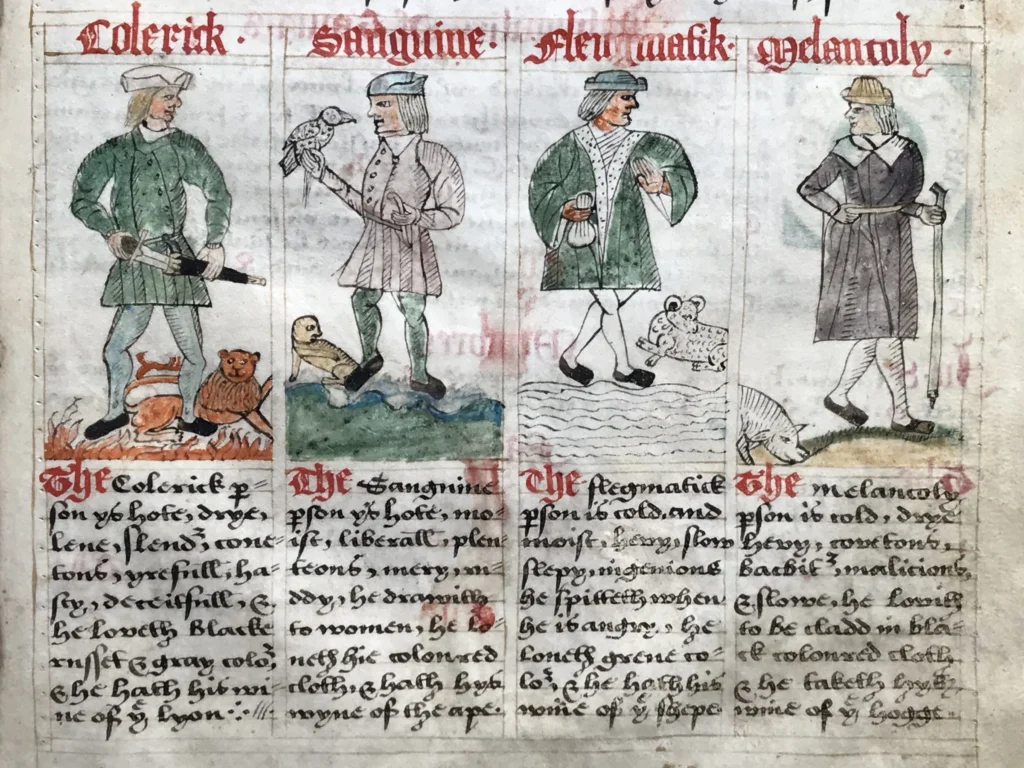 Colerick.
Sanguine.
Fleugmatik.
Melancoly.
The Colerick p̱=
son ys hote, drye,
lene, slendʒ, coue=
tous, yrefull, ha=
sty, deceitfull, &
he loveth blacke
russet & gray coloʒ,
& he hath his wi=
ne of yͤ Lyon
The Sanguine
p̱son ys hote, mo=
ist, liberall, plen=
teous, mery, ru=
ddy, he drawith
to women, he lo=
ueth hie coloured
cloth, & hath hys
wyne of the ape.
The flegmatick
p̱son is cold, and
moist, hevy, slow
slepy, ingenious
he spitteth when
he is angry, he
loueth grene co=
loʒ, & he hath his
wine of yͤ shepe
The melancoly
p̱son is cold, drye
hevy, covetous,
backbitʒ, malicious,
& slowe, he lovith
to be cladd in bla=
ck coloured cloth
& he taketh hys
wine of yͤ hogge.